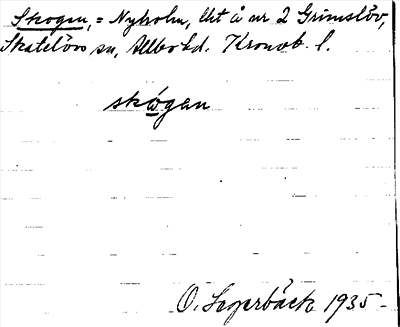 Skogen, = Nyholm, lht å nr 2 Grimslöv,
Skatelövs sn, Allbo hd. Kronob. l.
skógan
O. Lagerbäck 1935